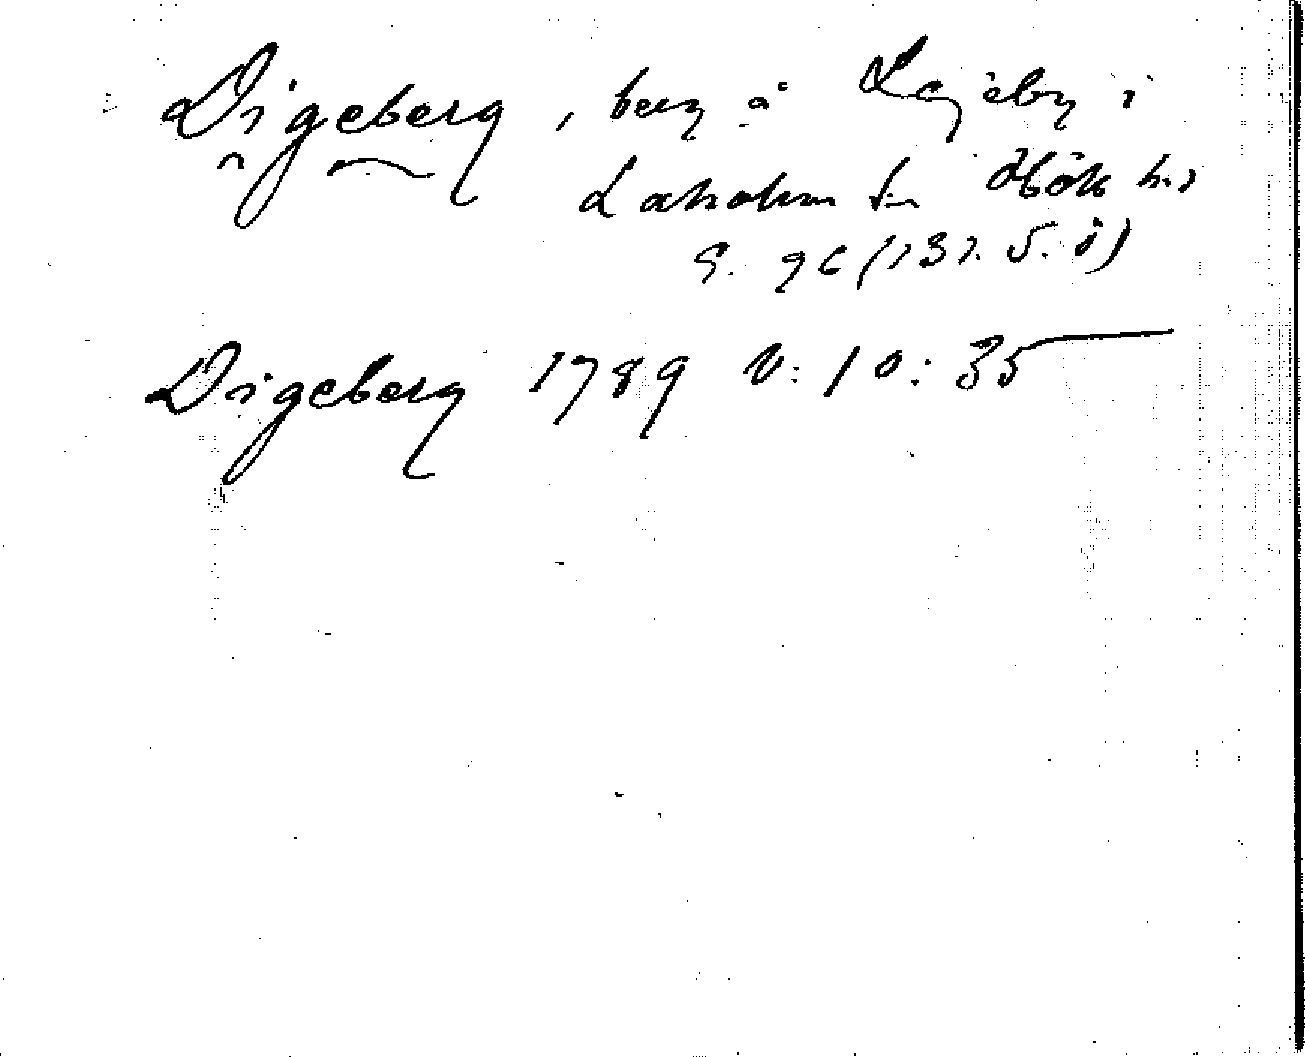 Digeberg, berg å Lejeby i
Laholm sn Höks hd
G. 9C (131. 5. i)
Digeberg 1789 V: 10: 35